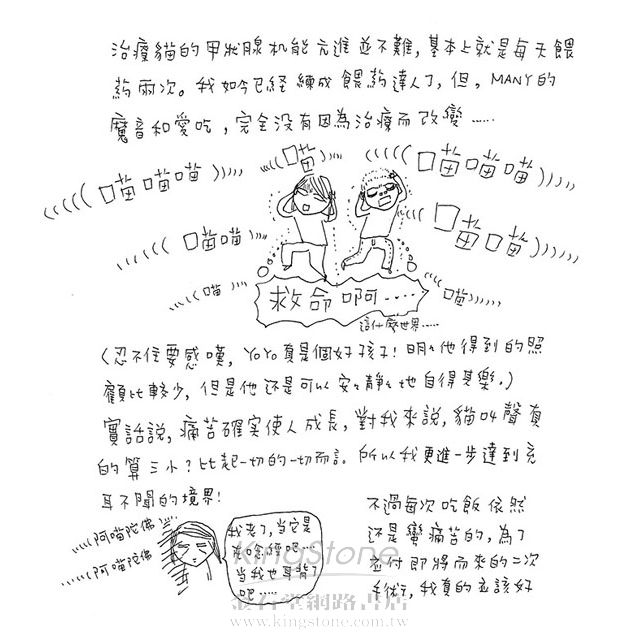 治療貓的甲狀腺机能亢進並不難,基本上就是每天餵
药兩次。我如今已经練成餵药達人了,但。MANY的
魔音和愛吃,完全没有因為治療而改變……
喵
喵喵喵
喵喵喵
喵喵
喵喵
喵
救命啊……
喵
這什麼世界……
(忍不住要感嘆,YOYO真是個好孩子!明々他得到的照
顧比較少,但是他还是可以安々靜々地自得其樂。)
實話說,痛苦確实使人成長,對我來說,貓叫聲真
的算三小?比起一切的一切而言。所以我更進一步達到充
耳不聞的境界!
阿喵陀佛
阿喵陀佛
我老了,当它是
在唸經吧
当我也耳背了
吧……
不過每次吃飯依然
还是蠻痛苦的,為了
应付即將而來的二次
手術,我真的应該好
KingStone
金石堂網路書店
www.kingstone.com.tw